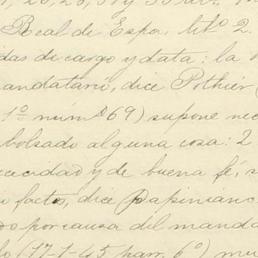 Real de Espa. lib.o 2.
das de cargo y data: la
andatario, dice Pothier
1º núm.º 69) supone ne
bolsado alguna cosa: 2
cacidad y de buena fé, s
facto, dice Papiniano
do por causa del manda
lo (17-1-45 parr. 6º) mu